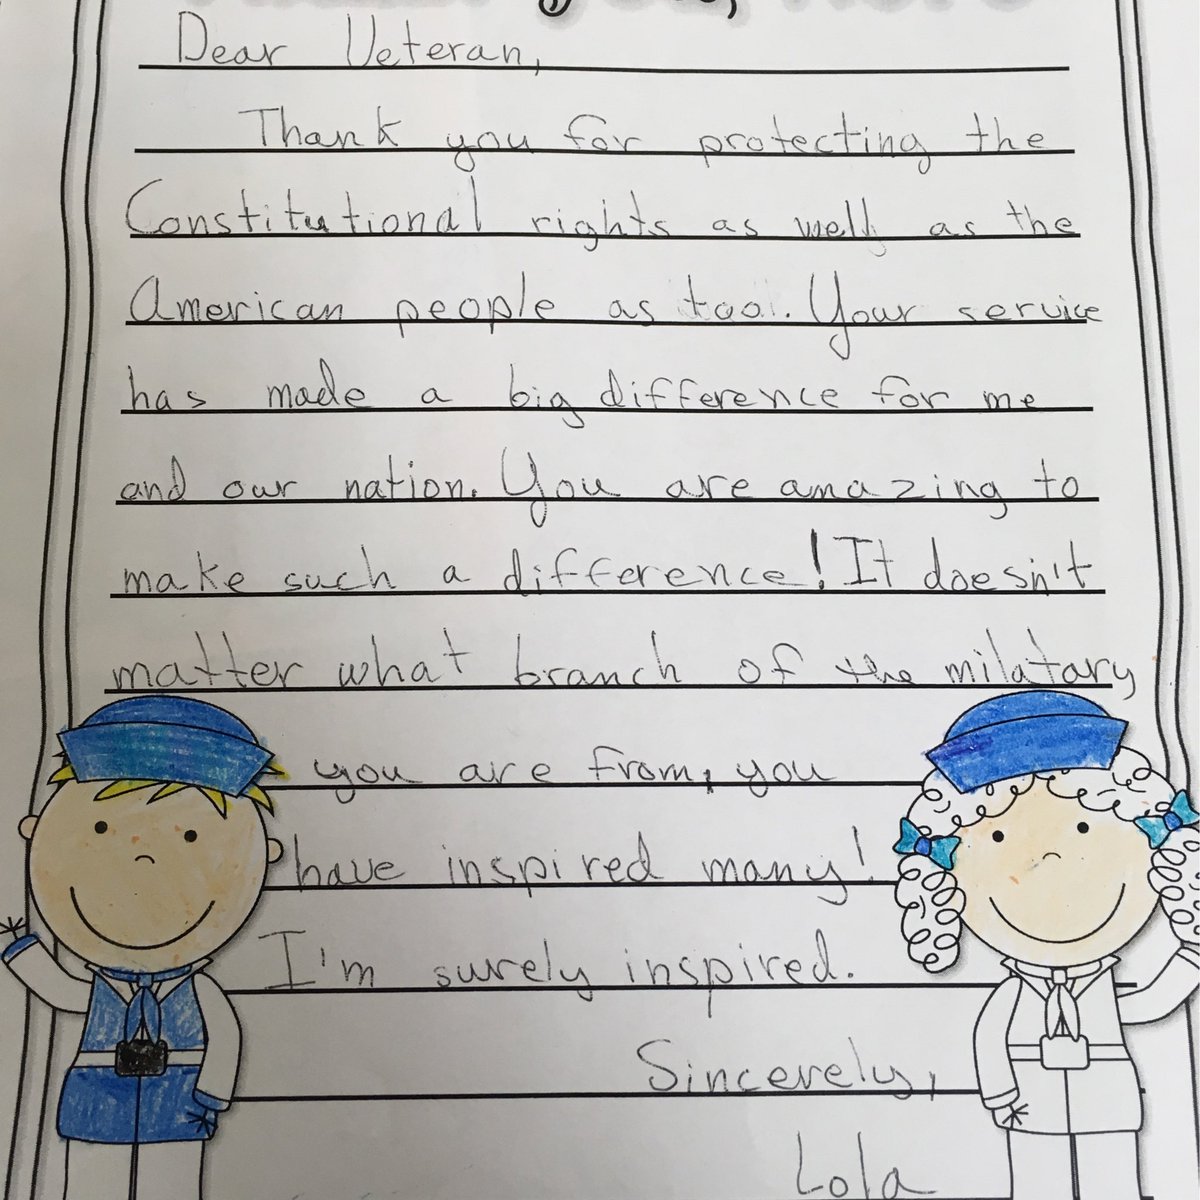 Dear Veteran,
Thank you for protecting the
Constitutional rights as well as the
American people as too. Your service
has made a big difference for me
and our nation. You are amazing to
make such a difference! It doesn't
matter what branch of the milatary
you are from, you
have inspired many!
I'm surely inspired.
Sincerely,
Lola